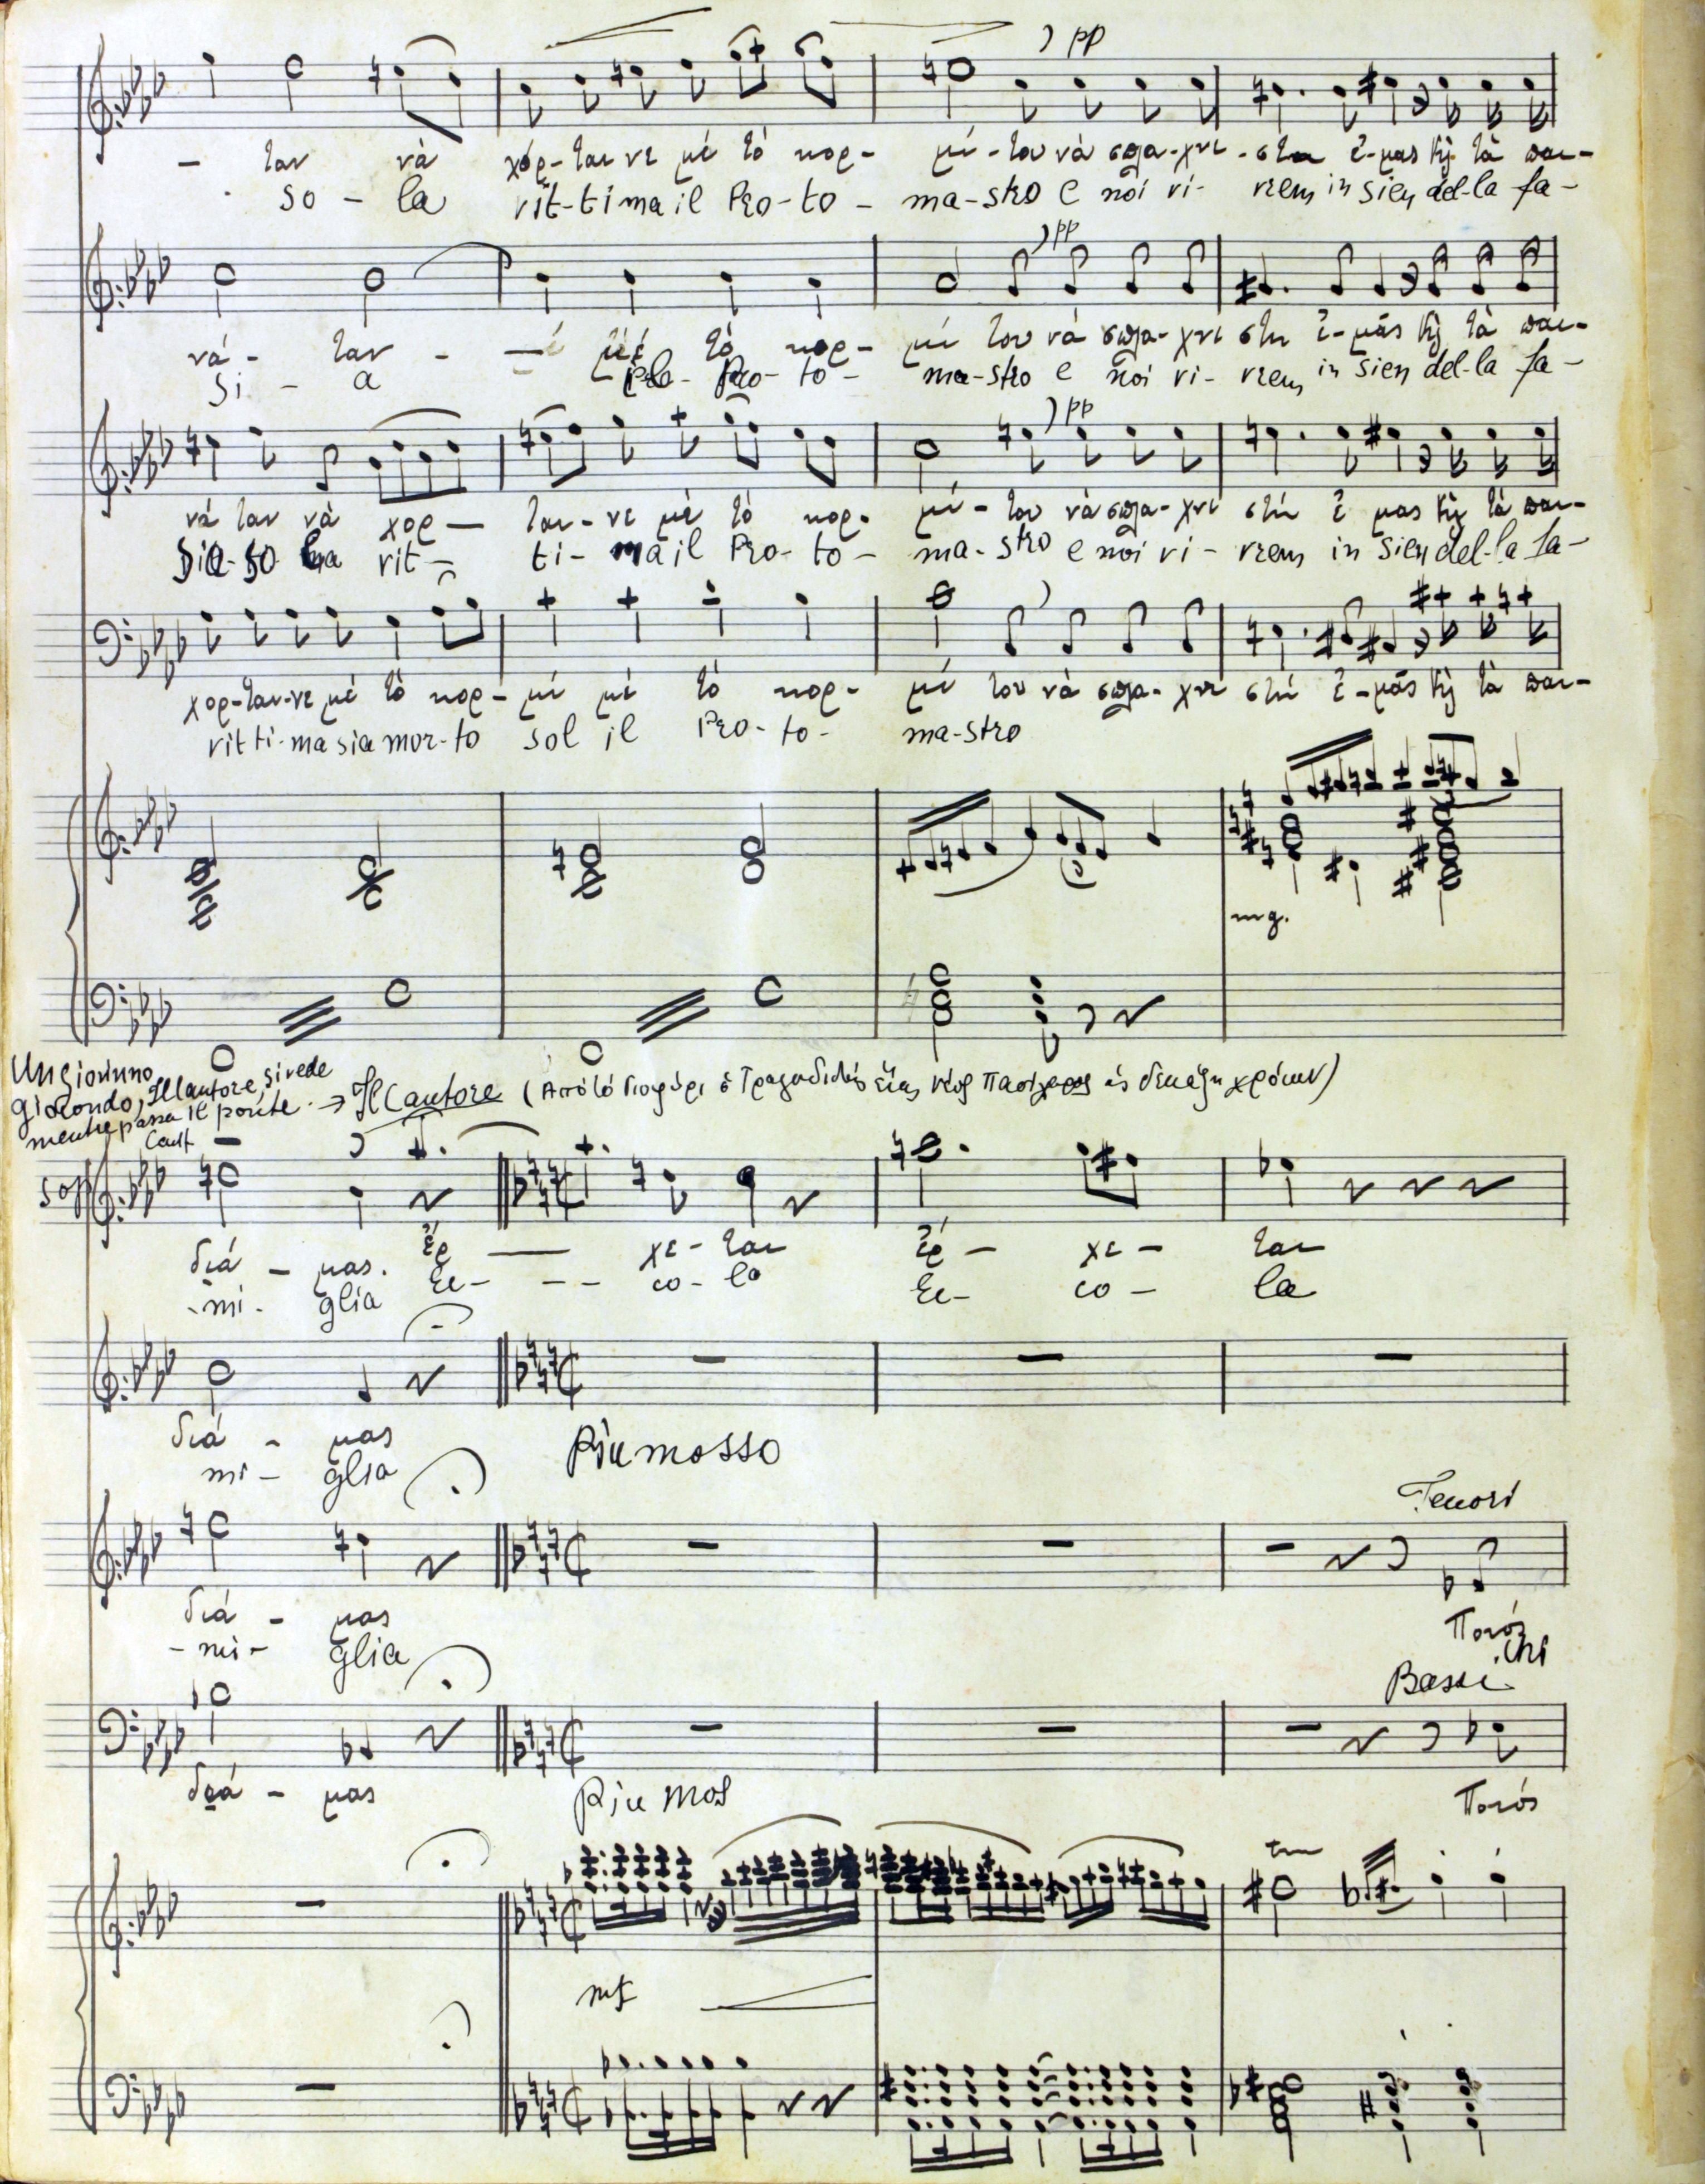 pp
- ταν νὰ χόρ-ταινε μὲ τὸ κορ- μί-του νὰ σπλα-χνι-στῆ ἐ-μᾶς κὴ τὰ παι-
so - la vit-tima il Pro-to - ma-stro e noi ri- vrem in sien del-la fa-
pp
νά- ταν - μὲ τὸ κορ- μί του νὰ σπλα-χνι στῆ ἐ-μᾶς κὴ τὰ παι-
si - a Pro- to - ma-stro e noi ri- vrem in sien del-la fa-
pp
νά ταν νὰ χορ - ται-νε μὲ τὸ κορ- μί-του νὰ σπλα-χνι στῆ ἐ μας κὴ τὰ παι-
sia-so la vit- ti- ma il Pro-to- ma-stro e noi ri- vrem in sien del-la fa-
χορ-ται-νε μὲ τὸ κορ- μί μὲ τὸ κορ- μί του νὰ σπλα-χνι στῆ ἐ-μᾶς κὴ τὰ παι-
vitti-ma sia mor-to sol il Pro-to- ma-stro
mg.
Un giovinno
giocondo, Il cantore, si vede
mentre passa il ponte. → Il Cantore (Ἀπὸ τὸ γιοφύρι ὁ Τραγουδιστὴς ἕνας νέος χρόνων)
Cant
Sop
διά - μας. Ἔρ — χε-ται ἔρ - χε - ται
-mi- glia Ec- -- co-lo Ec- co- la
διά - μας
mi- glia
Piu mosso
Tenori
διά - μας
-mi- glia
Ποιός
Chi
Bassi
διά - μας
Piu mos
Ποιός
tr
mf